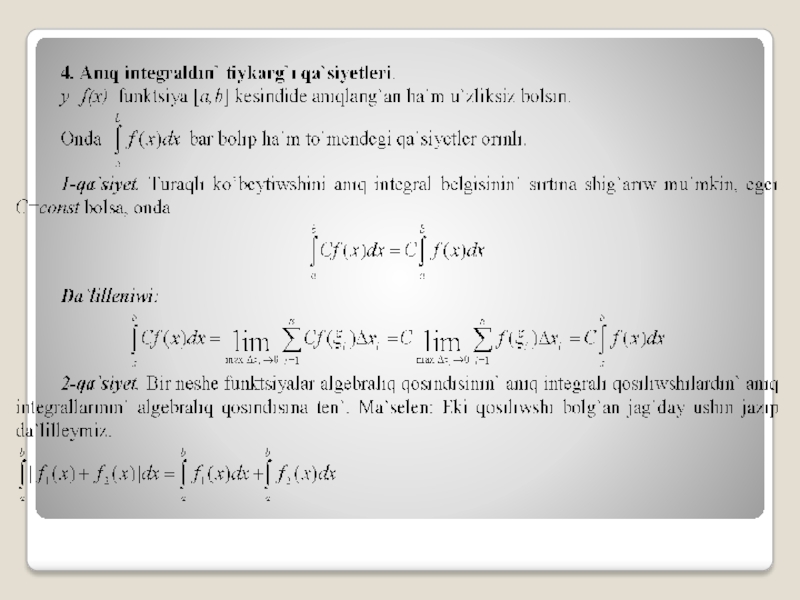 4. Anıq integraldın` tiykarg`ı qa`siyetleri.
y=f(x) funktsiya [a,b] kesindide anıqlang`an ha`m u`zliksiz bolsın.
Onda ∫_a^b f(x)dx bar bolıp ha`m to`mendegi qa`siyetler orınlı.
1-qa`siyet. Turaqlı ko`beytiwshini anıq integral belgisinin` sırtına shig`arıw mu`mkin, eger
C=const bolsa, onda
∫_a^b Cf(x)dx = C∫_a^b f(x)dx
Da`lilleniwi:
∫_a^b Cf(x)dx = lim_{max Δx_i→0} ∑_{i=1}^n Cf(ξ_i)Δx_i = C lim_{max Δx_i→0} ∑_{i=1}^n f(ξ_i)Δx_i = C∫_a^b f(x)dx
2-qa`siyet. Bir neshe funktsiyalar algebralıq qosındısının` anıq integralı qosılıwshılardın` anıq
integrallarının` algebralıq qosındısına ten`. Ma`selen: Eki qosılıwshı bolg`an jag`day ushın jazıp
da`lilleymiz.
∫_a^b [f_1(x)+f_2(x)]dx = ∫_a^b f_1(x)dx + ∫_a^b f_2(x)dx